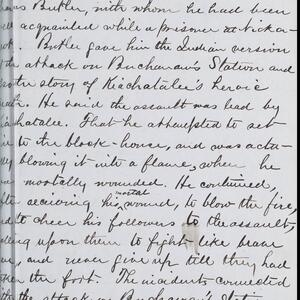 Butler, with whom he had been
acquainted while a prisoner at Nicka-
Butler gave him the Indian version
attack on Buchanan's Station and
story of Kiachatalee's heroic
He said the assault was lead by
That he attempted to set
to the block-house, and was actu-
blowing it into a flame, when he
mortally wounded. He continued,
receiving his mortal wound, to blow the fire,
to cheer his followers to the assault,
upon them to fight like brave
and never give up till they had
the fort. The incidents connected
the attack on Buchanan's